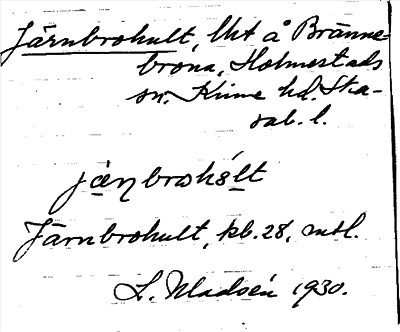 Järnbrohult, lht å Bränne-
brona, Holmestads
sn. Kinne hd. Ska-
rab. l.
jä̱ɳbrɷhó̱lt
Järnbrohult, kb. 28, mtl.
L. Madsén 1930.